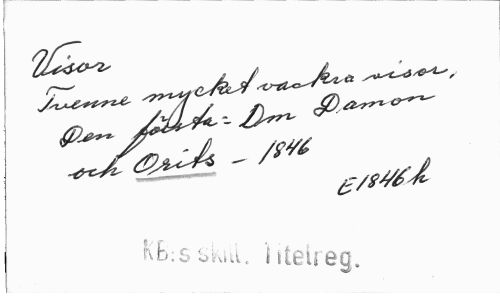 Visor
Tvenne mycket vackra visor,
Den första: Om Damon
och Orits - 1846
E1846k
KB:s skill. Titelreg.